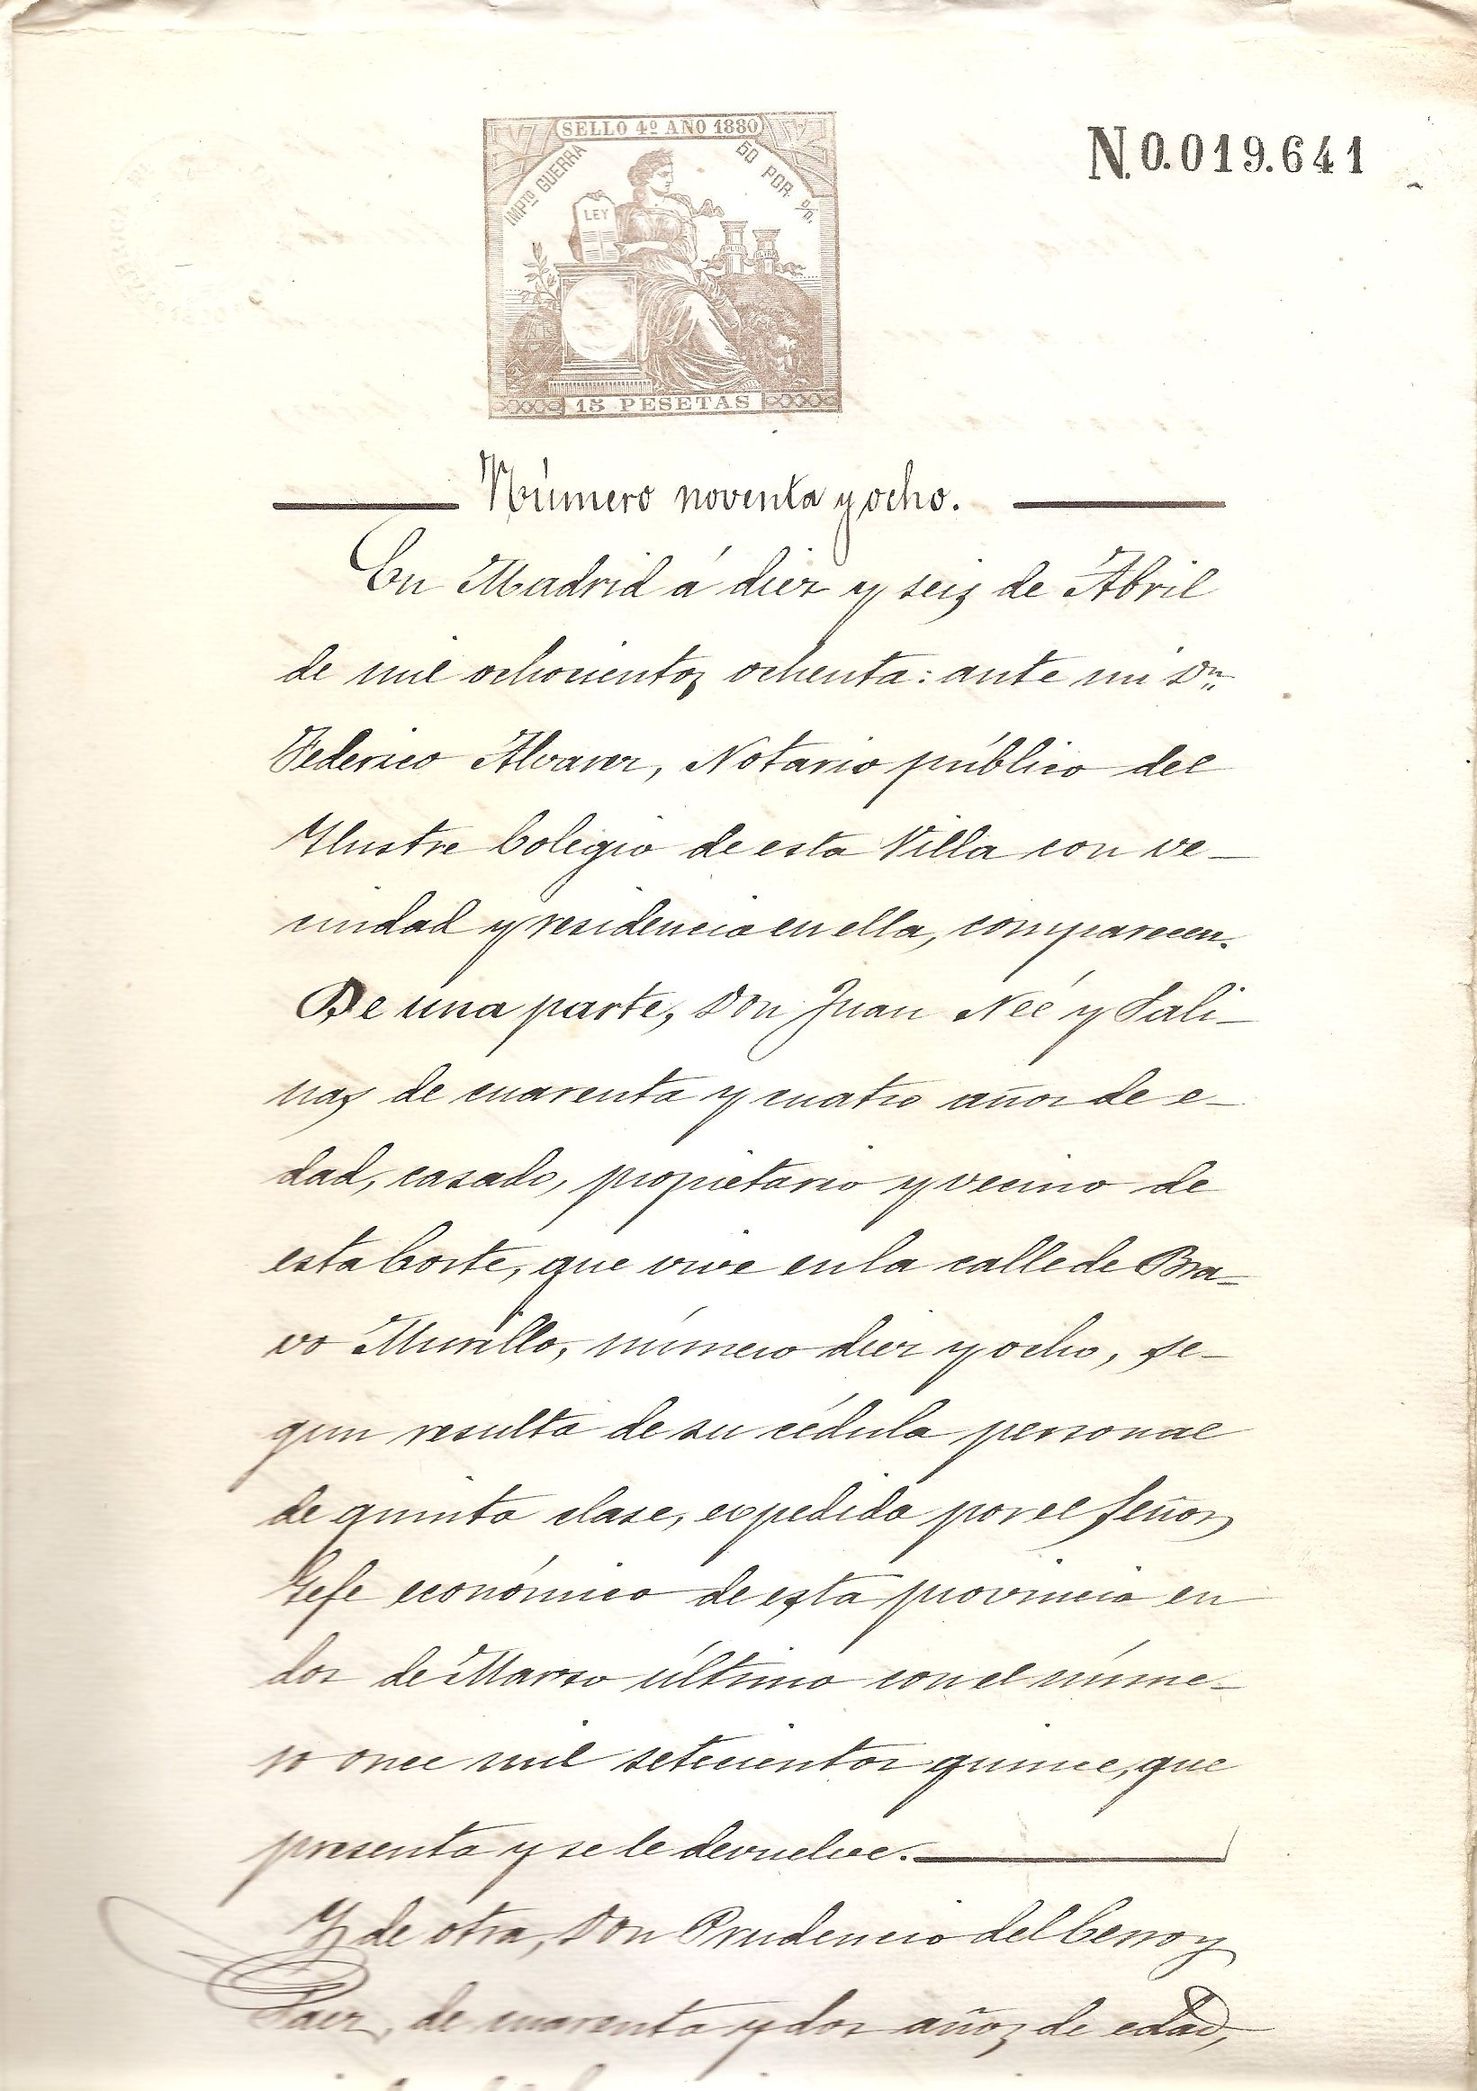 SELLO 4º AÑO 1880
IMPTO GUERRA
50 POR %
LEY
15 PESETAS
N.0.019.641
Número noventa y ocho.
En Madrid á diez y seis de Abril
de mil ochocientos ochenta: ante mi Dn
Federico Alvarez, Notario público del
Ilustre Colegio de esta Villa con ve-
cindad y residencia en ella, comparecen.
De una parte, Don Juan Neé y Sali-
nas de cuarenta y cuatro años de e-
dad, casado, propietario y vecino de
esta Corte, que vive en la calle de Bra-
vo Murillo, número diez y ocho, se-
gun resulta de su cédula personal
de quinta clase, expedida por el Señor
Gefe económico de esta provincia en
dos de Marzo último con el núme-
ro once mil setecientos quince, que
presenta y se le devuelve.
Y de otra, Don Prudencio del Cerro y
Paez, de cuarenta y dos años de edad,